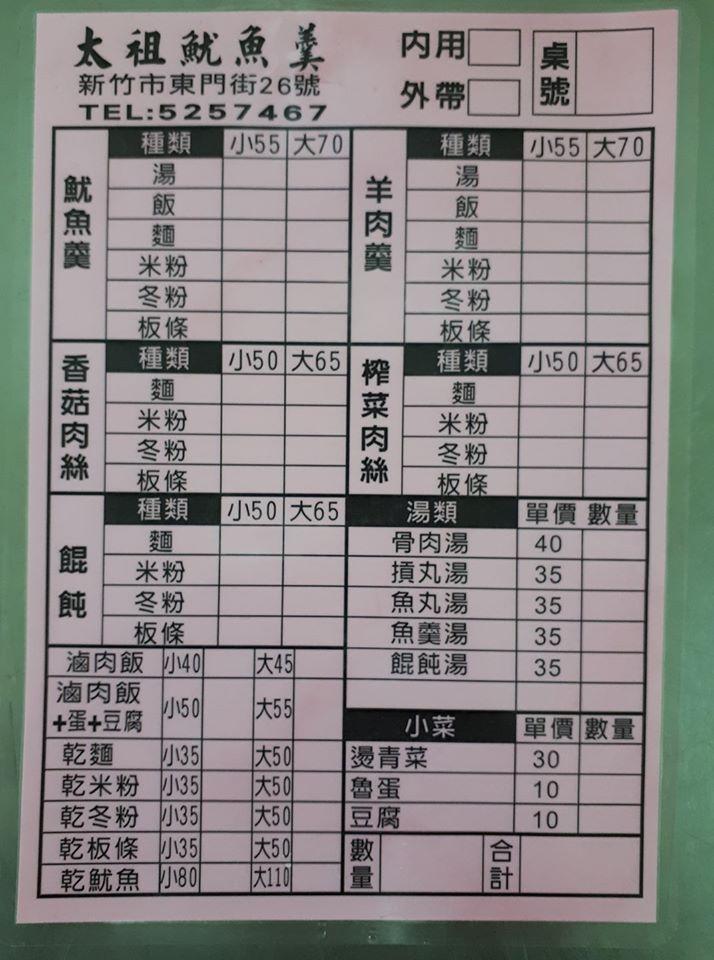 太祖魷魚羹
新竹市東門街26號
TEL:5257467
內用
外帶
桌號
魷魚羹
種類 小55 大70
湯
飯
麵
米粉
冬粉
板條
羊肉羹
種類 小55 大70
湯
飯
麵
米粉
冬粉
板條
香菇肉絲
種類 小50 大65
麵
米粉
冬粉
板條
榨菜肉絲
種類 小50 大65
麵
米粉
冬粉
板條
餛飩
種類 小50 大65
麵
米粉
冬粉
板條
湯類 單價 數量
骨肉湯 40
摃丸湯 35
魚丸湯 35
魚羹湯 35
餛飩湯 35
滷肉飯 小40 大45
滷肉飯
+蛋+豆腐 小50 大55
乾麵 小35 大50
乾米粉 小35 大50
乾冬粉 小35 大50
乾板條 小35 大50
乾魷魚 小80 大110
小菜 單價 數量
燙青菜 30
魯蛋 10
豆腐 10
數量
合計